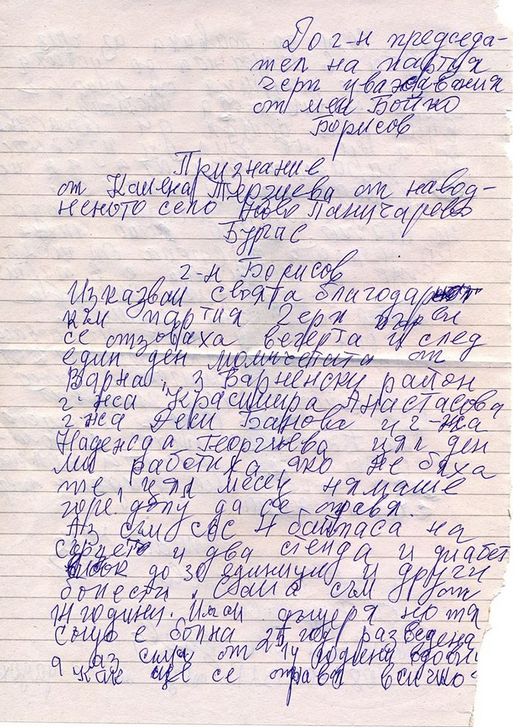 До г-н председа-
тел на партия
герп уважавания
от мен Бойко
Борисов
Признание
от Калена Тергиева от навод-
неното село Ново Паничарево
Бургас
г-н Борисов
Изказвам своята благодарност
към партия Герп първи
се отзоваха вечерта и след
един ден момичетата от
Варна, 3 Варненски район
г-жа Красимира Анастасова
г-жа Деки Банова и г-жа
Надежда Георгиева цял ден
ми работиха ако не бяха
те, цял месец нямаше
горе долу да се оправя.
Аз съм със 4 байпаса на
сърцето и два стенда и диабет
висок до 30 единици и други
болести. Сама съм от
14 години. Имам дъщеря но тя
също е болна год. разведена
а аз сама от годин
Как ще се оправя всичко